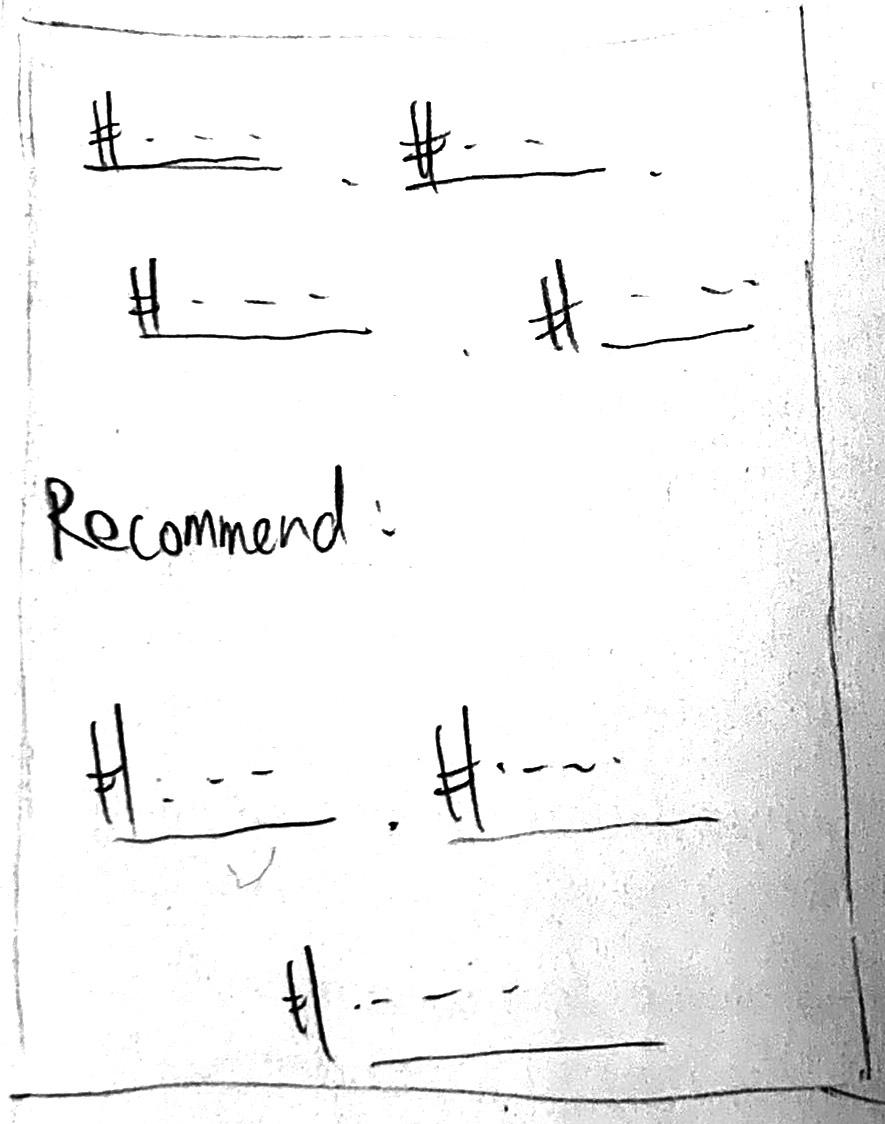 #---- . #--- .
#---- . #----
Recommend:
#---- . #----
#----